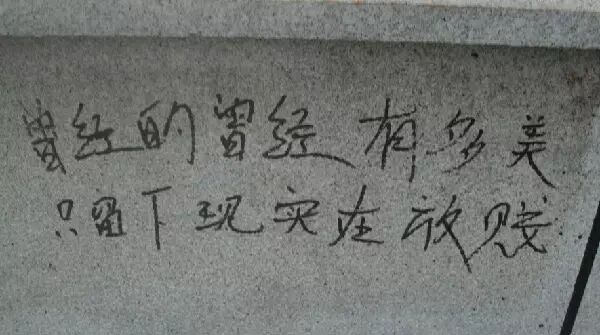 曾经的曾经有多美
只留下现实在放贱